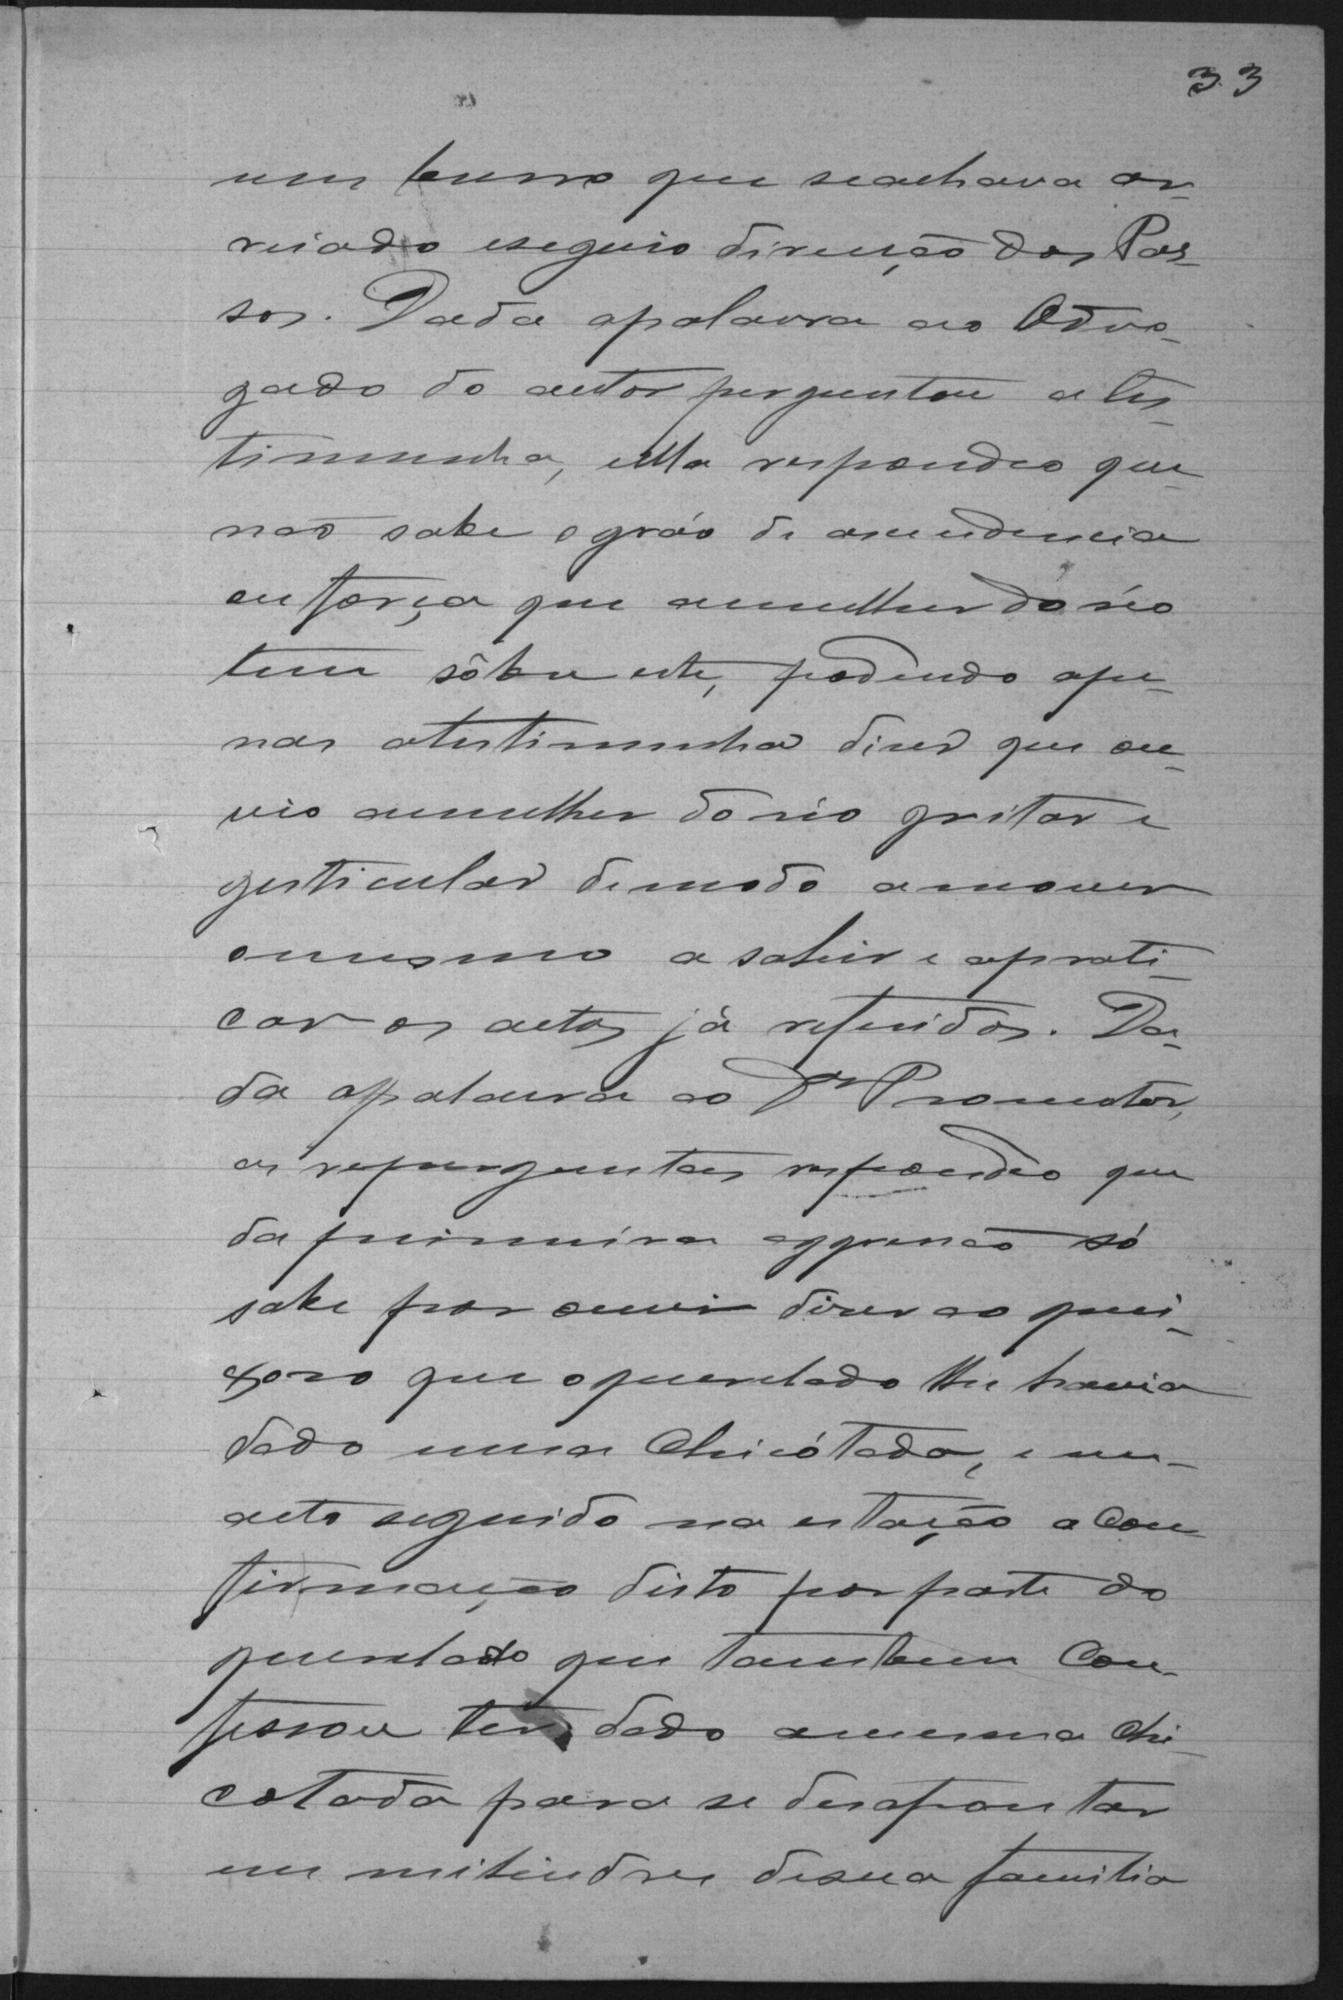 33
um burro que seachava ar-
reiado eseguio direcção dos Pas-
sos. Dada apalavra ao Advo-
gado do autor perguntou a tes-
timunha, ella respondeo que
não sabe ográo de ascendencia
ou força que amulher do réo
tem sôbre este, podendo ape-
nas atestimunha diser que ou-
vio amulher do réo gritar e
gesticular demodo amover
omesmo a sahir e aprati-
car os actos já referidos. Da-
da apalavra ao Dr Promotor,
as reperguntas respondeo que
da primeira aggressão só
sabe por ouvir diser ao quei-
xoso que oquerelado lhe havia
dado uma Chicótada, e em-
acto seguido na estação a Con
firmação disto por parte do
querelado que tambem Con-
fessou ter dado amesma chi-
cotada para se desafrontar
em desua familia